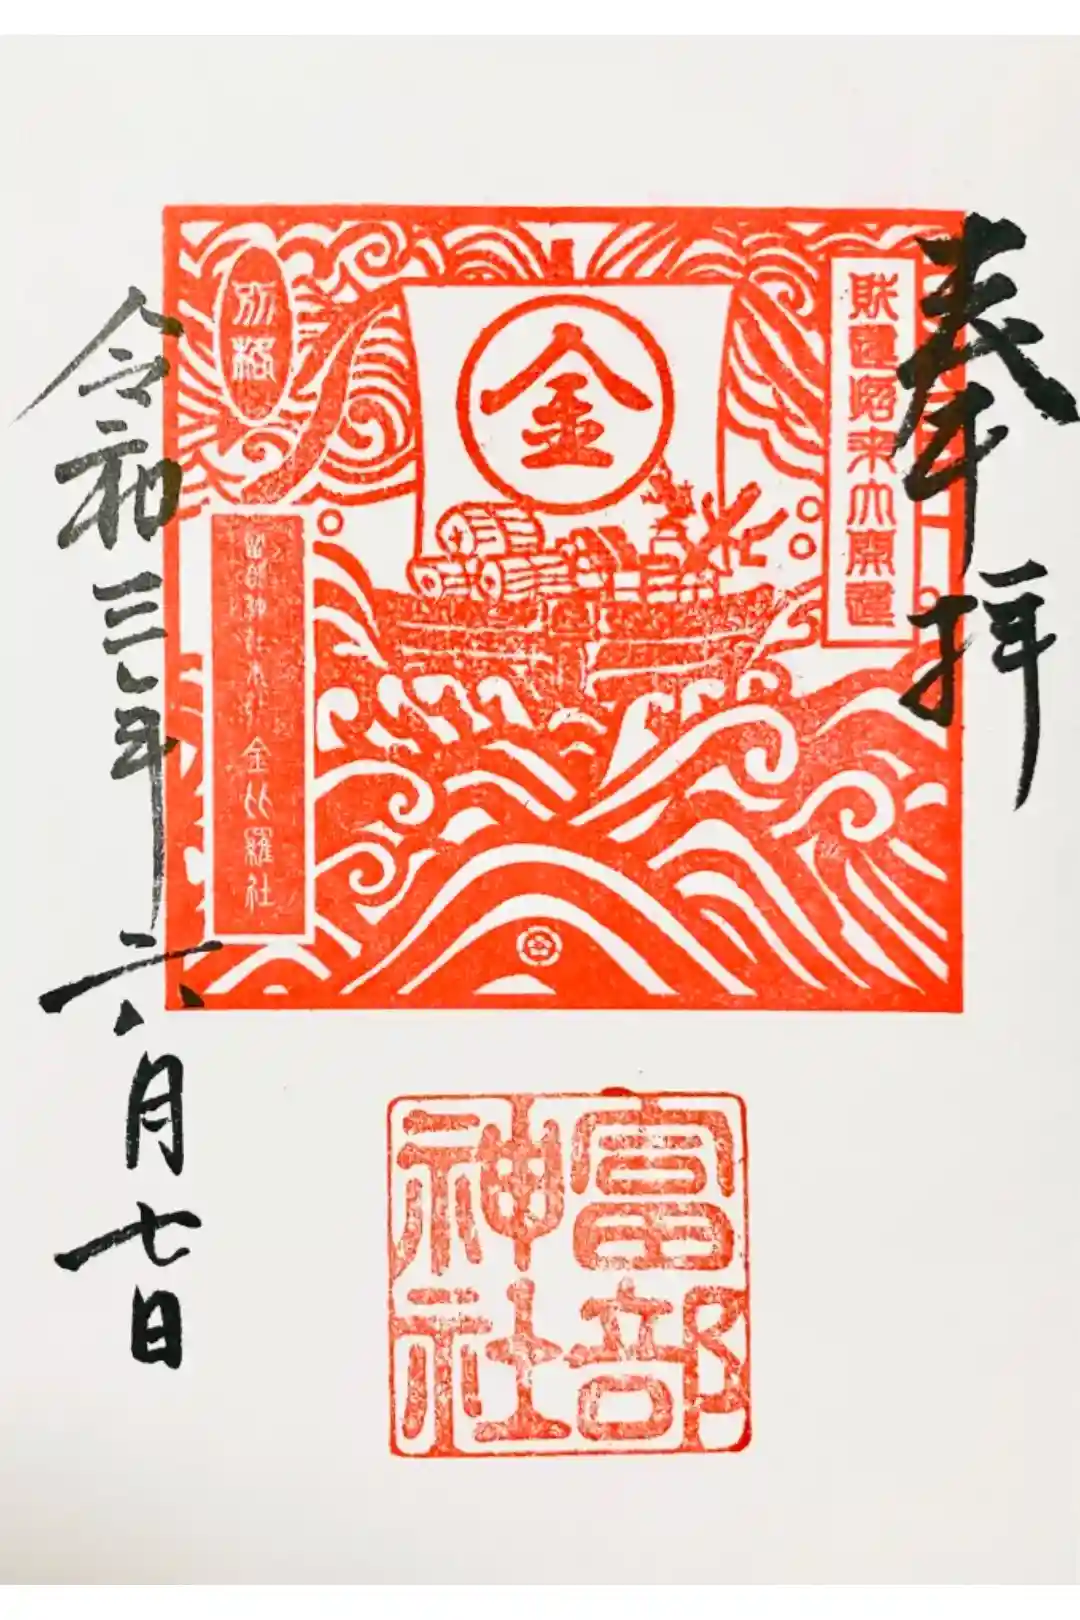 奉拝
財運招来大開運
金
別格
富部神社内 金比羅社
令和三年六月七日
富部
神社